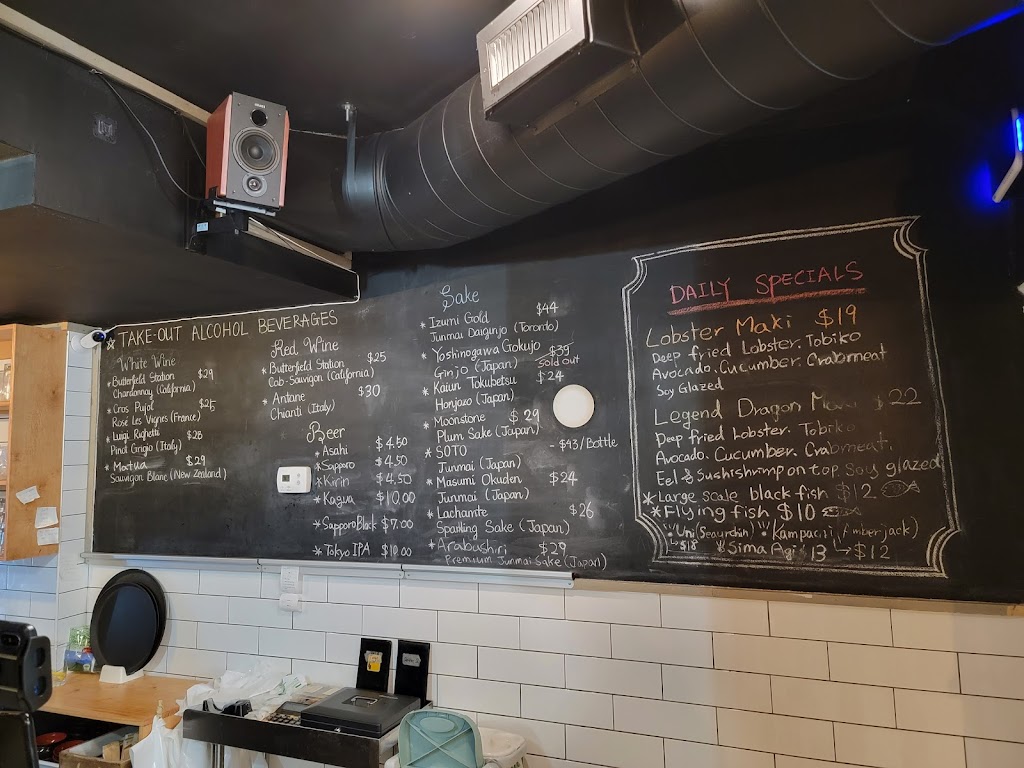 * TAKE-OUT ALCOHOL BEVERAGES
White Wine
* Butterfield Station $29
Chardonnay (California)
* Cros Pujol $25
Rosé Les Vignes (France)
* Luigi Righetti $28
Pinot Grigio (Italy)
* Matua $29
Sauvignon Blanc (New Zealand)
Red Wine
* Butterfield Station $25
Cab-Sauvignon (California)
* Antane $30
Chianti (Italy)
Beer
* Asahi $4.50
* Sapporo $4.50
* Kirin $4.50
* Kagua $10.00
* Sapporo Black $7.00
* Tokyo IPA $10.00
Sake
* Izumi Gold $44
Junmai Daiginjo (Toronto)
* Yoshinogawa Gokujo $39
Ginjo (Japan) Sold out
* Kaiun Tokubetsu $24
Honjozo (Japan)
* Moonstone $29
Plum Sake (Japan)
* SOTO - $43/Bottle
Junmai (Japan)
* Masumi Okuden $24
Junmai (Japan)
* Lachante $26
Sparling Sake (Japan)
* Arabushiri $29
Premium Junmai Sake (Japan)
DAILY SPECIALS
Lobster Maki $19
Deep fried Lobster. Tobiko
Avocado. Cucumber. Crabmeat
Soy Glazed
Legend Dragon 22
Deep fried Lobster. Tobiko
Avocado. Cucumber. Crabmeat.
Eel & Sushishrimp on top Soy glazed
* Large scale black fish $12
* Flying fish $10
• Uni (Seaurchin) • Kampachi (Amberjack)
↳ $18 Sima Agi $13 ↳ $12